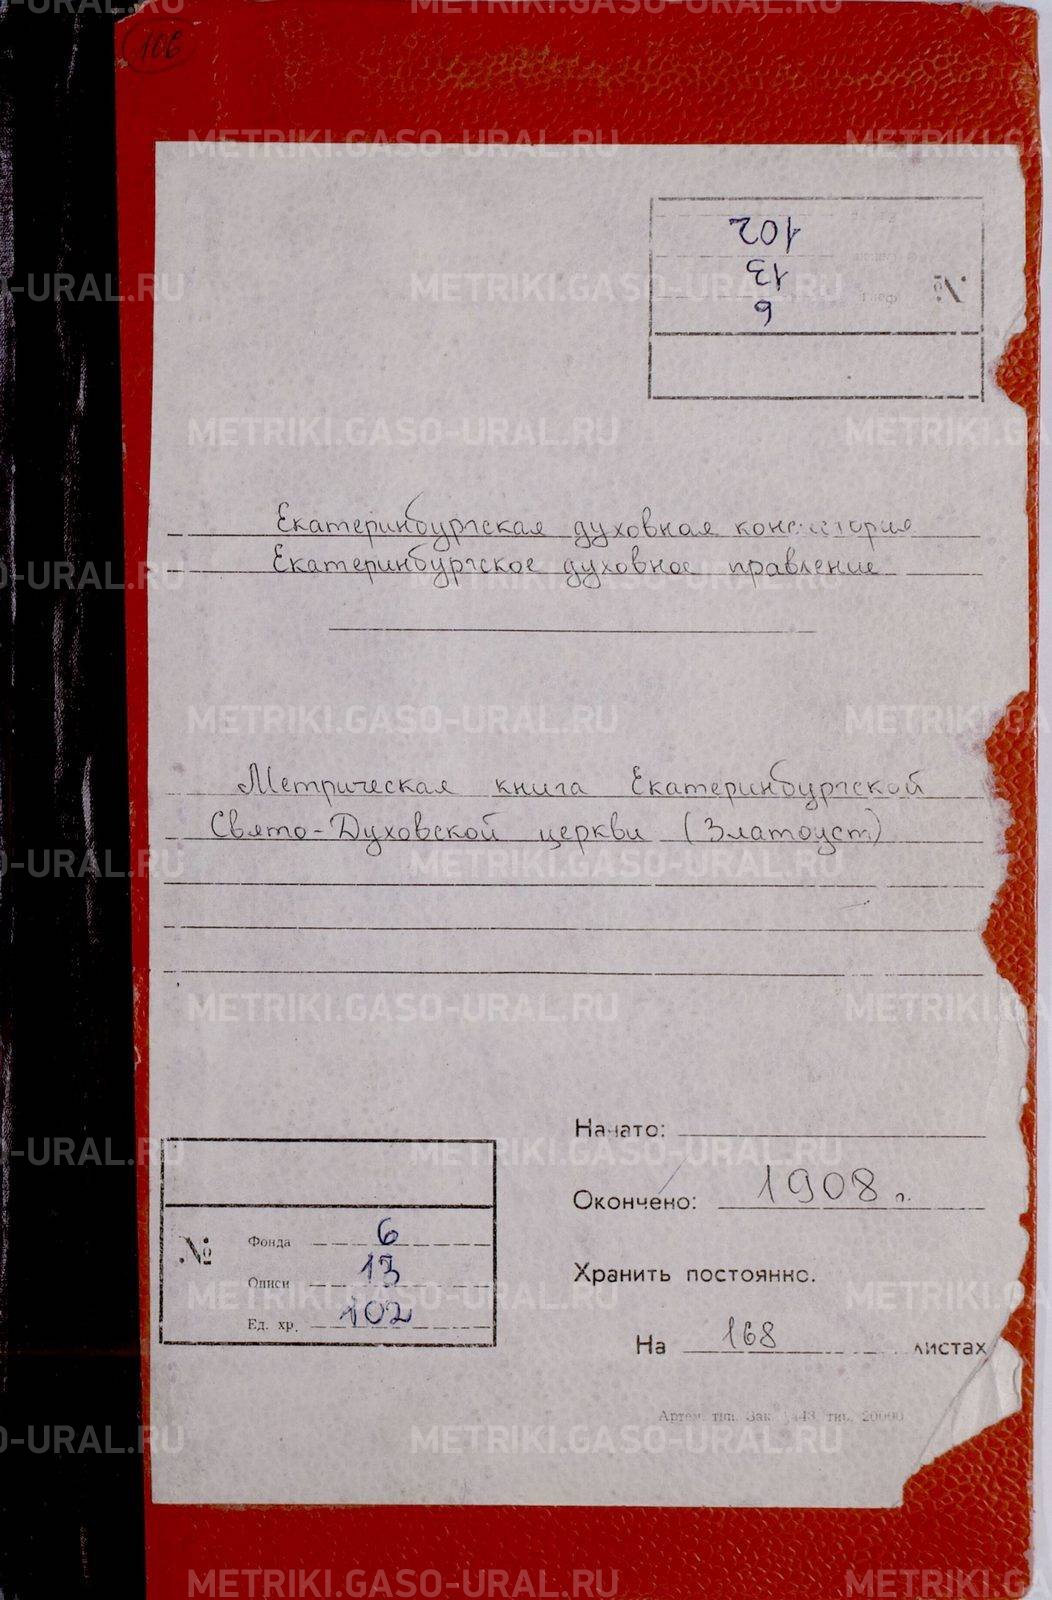 106
102
13
6
№
Екатеринбургская духовная консистория
Екатеринбургское духовное правление
Метрическая книга Екатеринбургской
Свято-Духовской церкви (Златоуст)
Начато:
Окончено: 1908 г.
Хранить постоянно.
На 168 листах
№
Фонда 6
Описи 13
Ед. хр. 102
Артем. тип. Зак. тир. 20000
METRIKI.GASO-URAL.RU